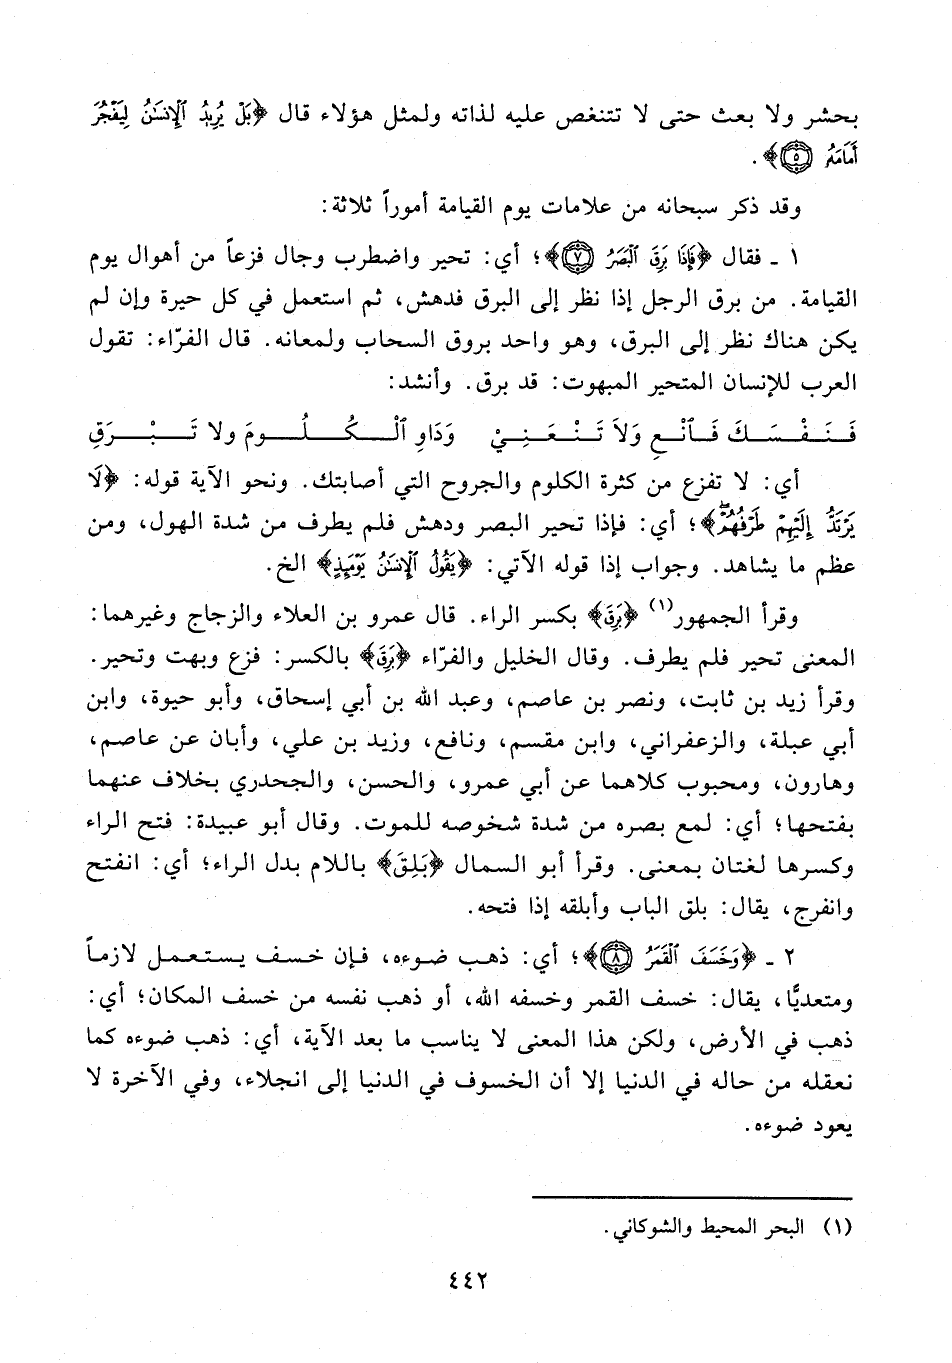 بحشر ولا بعث حتى لا تتنغص عليه لذاته ولمثل هؤلاء قال ﴿بَلْ يُرِيدُ ٱلْإِنسَٰنُ لِيَفْجُرَ
أَمَامَهُۥ ٥﴾.
وقد ذكر سبحانه من علامات يوم القيامة أموراً ثلاثة:
١ ـ فقال ﴿فَإِذَا بَرِقَ ٱلْبَصَرُ ٧﴾؛ أي: تحير واضطرب وجال فزعاً من أهوال يوم
القيامة. من برق الرجل إذا نظر إلى البرق فدهش، ثم استعمل في كل حيرة وإن لم
يكن هناك نظر إلى البرق، وهو واحد بروق السحاب ولمعانه. قال الفرّاء: تقول
العرب للإنسان المتحير المبهوت: قد برق. وأنشد:
فَنَفْسَكَ فَٱنْعِ وَلاَ تَنْعَنِيْ وَدَاوِ ٱلْكُلُومَ ولا تَبْرَقِ
أي: لا تفزع من كثرة الكلوم والجروح التي أصابتك. ونحو الآية قوله: ﴿لَا
يَرْتَدُّ إِلَيْهِمْ طَرْفُهُمْ﴾؛ أي: فإذا تحير البصر ودهش فلم يطرف من شدة الهول، ومن
عظم ما يشاهد. وجواب إذا قوله الآتي: ﴿يَقُولُ ٱلْإِنسَٰنُ يَوْمَئِذٍ﴾ الخ.
وقرأ الجمهور(١) ﴿بَرِقَ﴾ بكسر الراء. قال عمرو بن العلاء والزجاج وغيرهما:
المعنى تحير فلم يطرف. وقال الخليل والفرّاء ﴿بَرِقَ﴾ بالكسر: فزع وبهت وتحير.
وقرأ زيد بن ثابت، ونصر بن عاصم، وعبد الله بن أبي إسحاق، وأبو حيوة، وابن
أبي عبلة، والزعفراني، وابن مقسم، ونافع، وزيد بن علي، وأبان عن عاصم،
وهارون، ومحبوب كلاهما عن أبي عمرو، والحسن، والجحدري بخلاف عنهما
بفتحها؛ أي: لمع بصره من شدة شخوصه للموت. وقال أبو عبيدة: فتح الراء
وكسرها لغتان بمعنى. وقرأ أبو السمال ﴿بَلِقَ﴾ باللام بدل الراء؛ أي: انفتح
وانفرج، يقال: بلق الباب وأبلقه إذا فتحه.
٢ ـ ﴿وَخَسَفَ ٱلْقَمَرُ ٨﴾؛ أي: ذهب ضوءه، فإن خسف يستعمل لازماً
ومتعديًّا، يقال: خسف القمر وخسفه الله، أو ذهب نفسه من خسف المكان؛ أي:
ذهب في الأرض، ولكن هذا المعنى لا يناسب ما بعد الآية، أي: ذهب ضوءه كما
نعقله من حاله في الدنيا إلا أن الخسوف في الدنيا إلى انجلاء، وفي الآخرة لا
يعود ضوءه.
(١) البحر المحيط والشوكاني.
٤٤٢